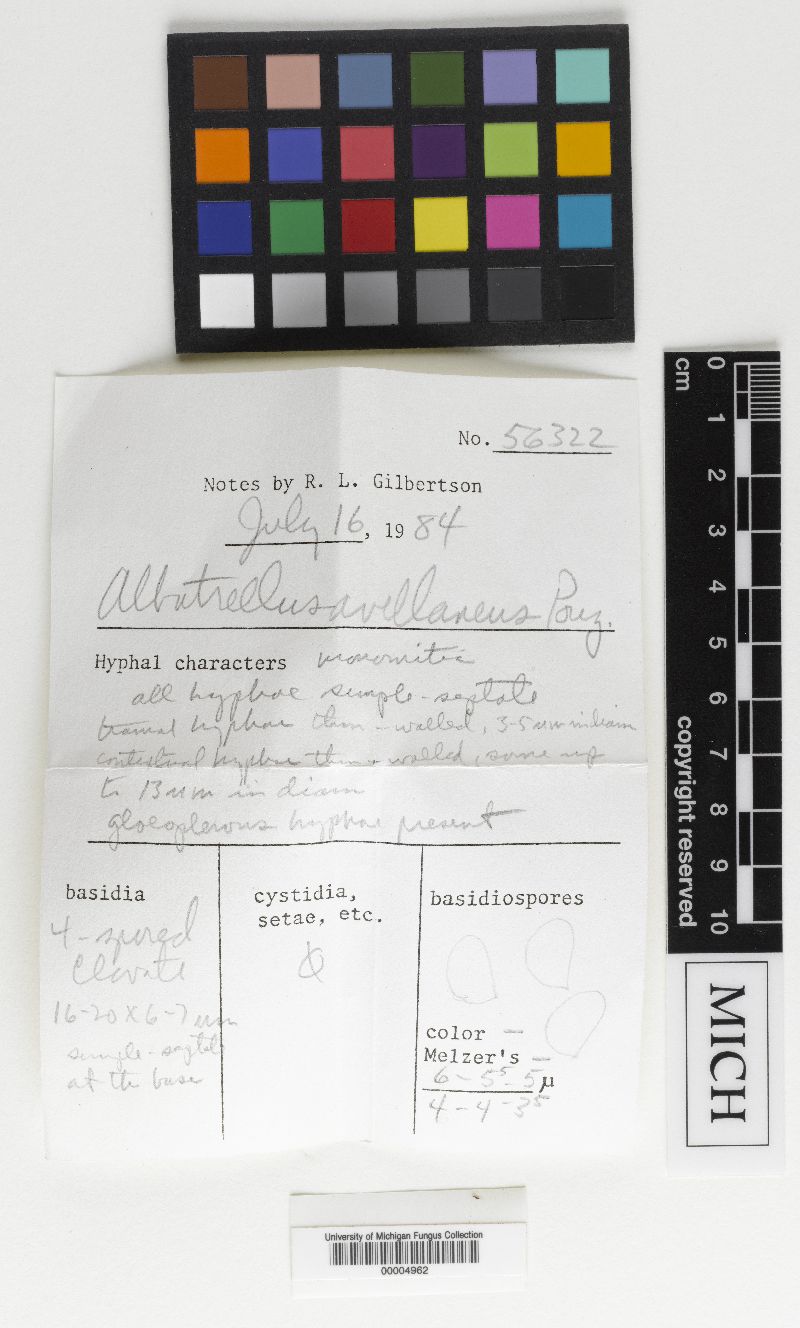 No. 56322
Notes by R. L. Gilbertson
July 16, 1984
Albatrellus avellaneus Pouz.
Hyphal characters monomitic
all hyphae simple-septate
tramal hyphae thin-walled, 3-5 µm in diam
contextual hyphae thin-walled, some up
to 13 µm in diam
gloeopleroous hyphae present
basidia
4-spored
clavate
16-20 X 6-7 µm
simple-septate
at the base
cystidia,
setae, etc.
basidiospores
color —
Melzer's —
6 - 5⁵ - 5 µ
4 - 4 - 3⁵
cm
0 1 2 3 4 5 6 7 8 9 10
copyright reserved
MICH
University of Michigan Fungus Collection
00004962